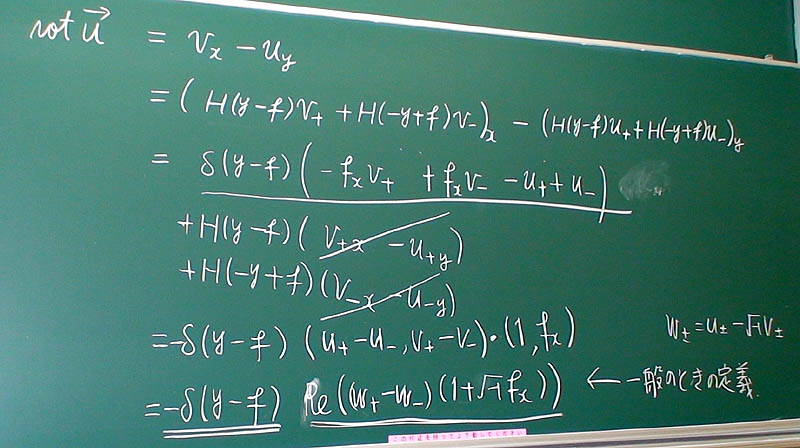 rot u⃗ = v_x − u_y
= ( H(y−f)v_+ + H(−y+f)v_−)_x − (H(y−f)u_+ + H(−y+f)u_−)_y
= δ(y−f) ( −f_x v_+ + f_x v_− − u_+ + u_− )
+H(y−f) ( v_{+x} − u_{+y})
+H(−y+f) (v_{−x} − u_{−y})
=−δ(y−f) (u_+ − u_−, v_+ − v_−)・(1, f_x) w_± = u_± − √−1 v_±
=−δ(y−f) Re((w_+ − w_−)(1+√−1 f_x)) ← 一般のときの定義